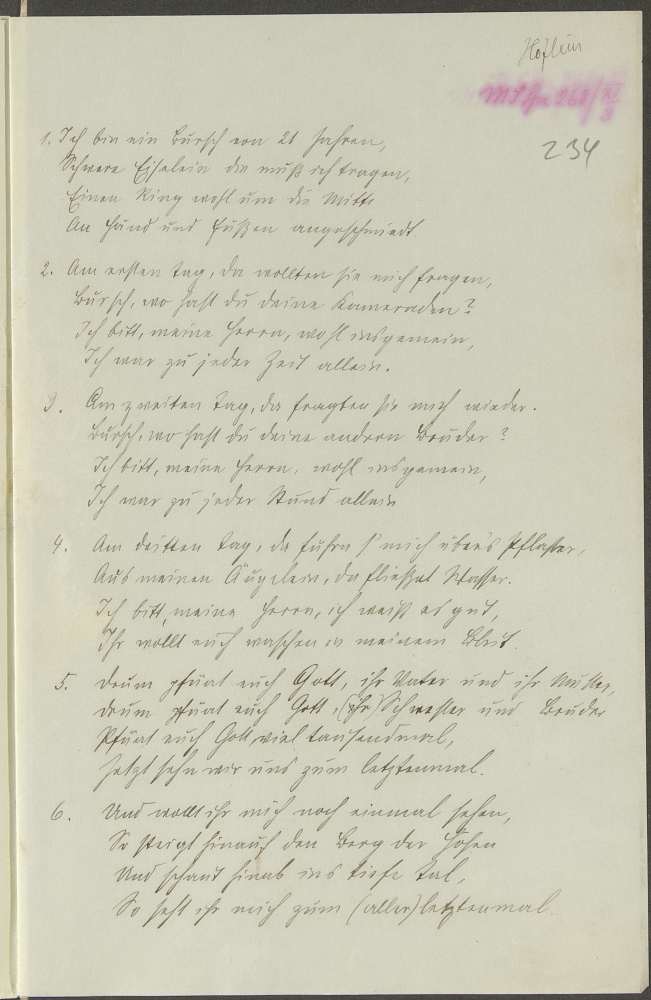 Höflein
234
1. Ich bin ein Bursch von 21 Jahren,
Schwere Eiselein die muß ich tragen,
Einen Ring wohl um die Mitte
An Händ und Füßen angeschmiedt
2. Am ersten Tag, da wollten sie mich fragen,
Bursch, wo hast du deine Kameraden?
Ich bitt, meine Herrn, wohl insgemein,
Ich war zu jeder Zeit allein.
3. Am zweiten Tag, da fragten sie mich wieder.
Bursch, wo hast du deine andern Brüder?
Ich bitt, meine Herrn, wohl insgemein,
Ich war zu jeder Stund allein
4. Am dritten Tag, da führn s' mich über's Pflaster,
Aus meinen Äugelein, da fließet Wasser.
Ich bitt, meine Herrn, ich weiß es gut,
Ihr wollt euch waschen in meinem Blut.
5. Drum pfüat euch Gott, ihr Vater und ihr Mutter,
Drum pfüat euch Gott, (ihr) Schwester und Bruder
Pfüat euch Gott viel tausendmal,
Jetzt sehn wir uns zum letztenmal.
6. Und wollt ihr mich noch einmal sehen,
So steigt hinauf den Berg der Höhen
Und schaut hinab ins tiefe Tal,
So seht ihr mich zum (aller)letztenmal.